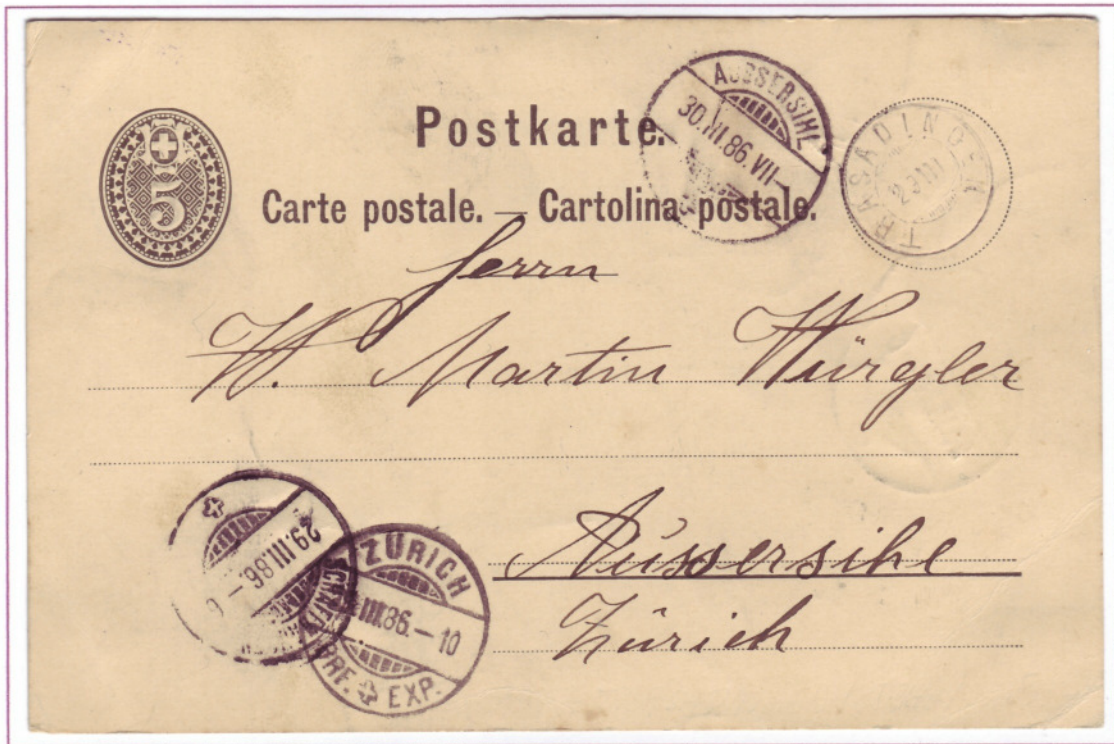 5
Postkarte.
Carte postale. — Cartolina postale.
AUSSERSIHL
30.III.86.VII-
TRASADINGEN
29 III
Herrn
W. Martin Würgler
Aussersihl
Zürich
29.III.86.
ZÜRICH
III.86.-10
BRF. EXP.